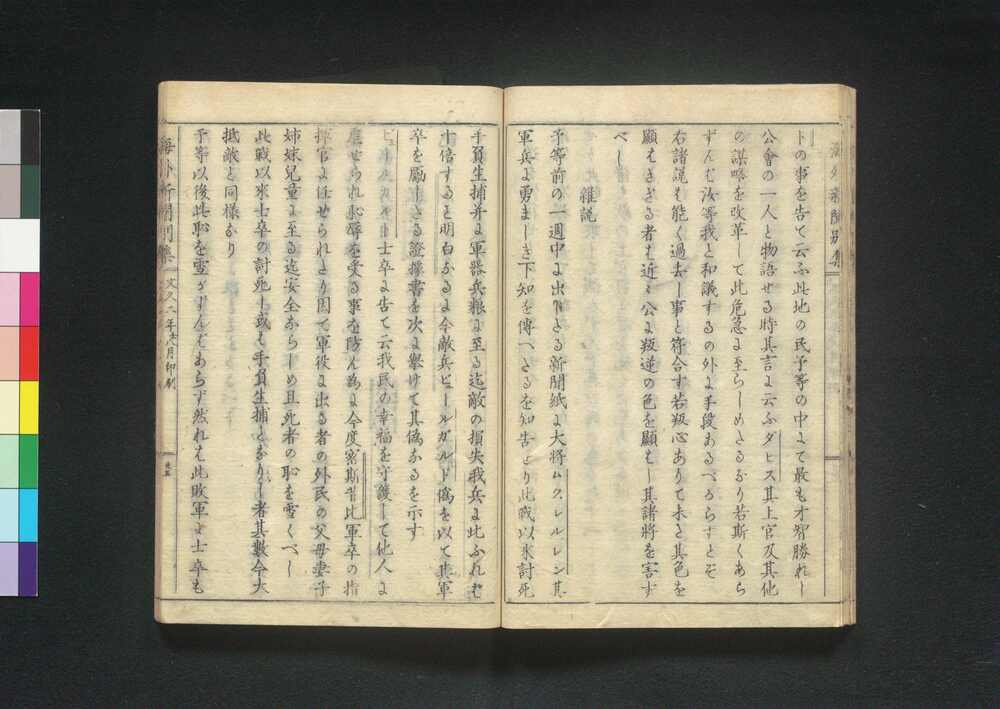 トの事を告て云ふ此地の民予等の中にて最も才智勝れし
公會の一人と物語せる時其言に云ふダヒス其上官及其他
の謀略を改革して此危急に至らしめたるなり若斯くあら
ずんば汝等我と和議するの外に手段あるべからずとぞ
右諸説も能く過去し事と符合す若叛心ありて未た其色を
顯はさざる者も近々公に叛逆の色を顯はし其諸將を害す
べし
雜説
予等前の一週中に出したる新聞紙に大將ムクレルレン其
軍兵に勇ましき下知を傳へたるを知告せり此戰以來討死
手負生捕并に軍器兵粮に至る迄敵の損失我兵に比ふれば
十倍すると明白なるに今敵兵ビュールガルド僞を以て其軍
卒を勵したる證據書を次に擧けて其僞なるを示す
士卒に告て云我民の幸福を守護して他人に
虐せられ恥辱を受る事を防ん為に今度密斯昔比軍卒の指
揮官に任せられたり因て軍役に出る者の外民の父母妻子
姉妹兒童に至る迄安全ならしめ且死者の恥を雪くべし
此戰以來士卒の討死し或は手負生捕となりし者其數今大
抵敵と同樣なり
予等以後此恥を雪がずんばあらず然れは此敗軍に士卒も
海外新聞別集
文久二年 八月印刻